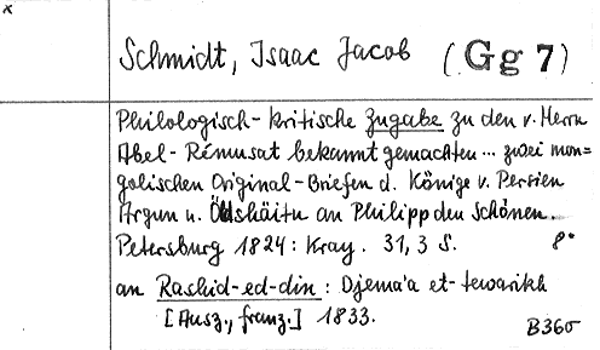 x
Schmidt, Isaac Jacob (Gg 7)
Philologisch-kritische Zugabe zu den v. Herrn
Abel-Rémusat bekannt gemachten ... zwei mon=
golischen Original-Briefen d. Könige v. Persien
Argun u. Öldshäitu an Philipp den Schönen.
Petersburg 1824: Kray. 31, 3 S. 8°
an Rashid-ed-din: Djema'a et-tewarikh
[Ausz., franz.] 1833.
B360